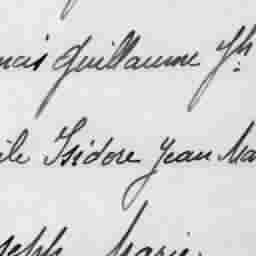 ncis Guillaume Jh
ile Isidore Jean Ma
seph Marie